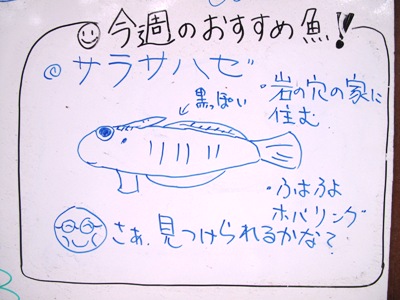 今週のおすすめ魚!
◎サラサハゼ
黒っぽい
・岩の穴の家に
住む
・ふよふよ
ホバリング
さぁ、見つけられるかな?